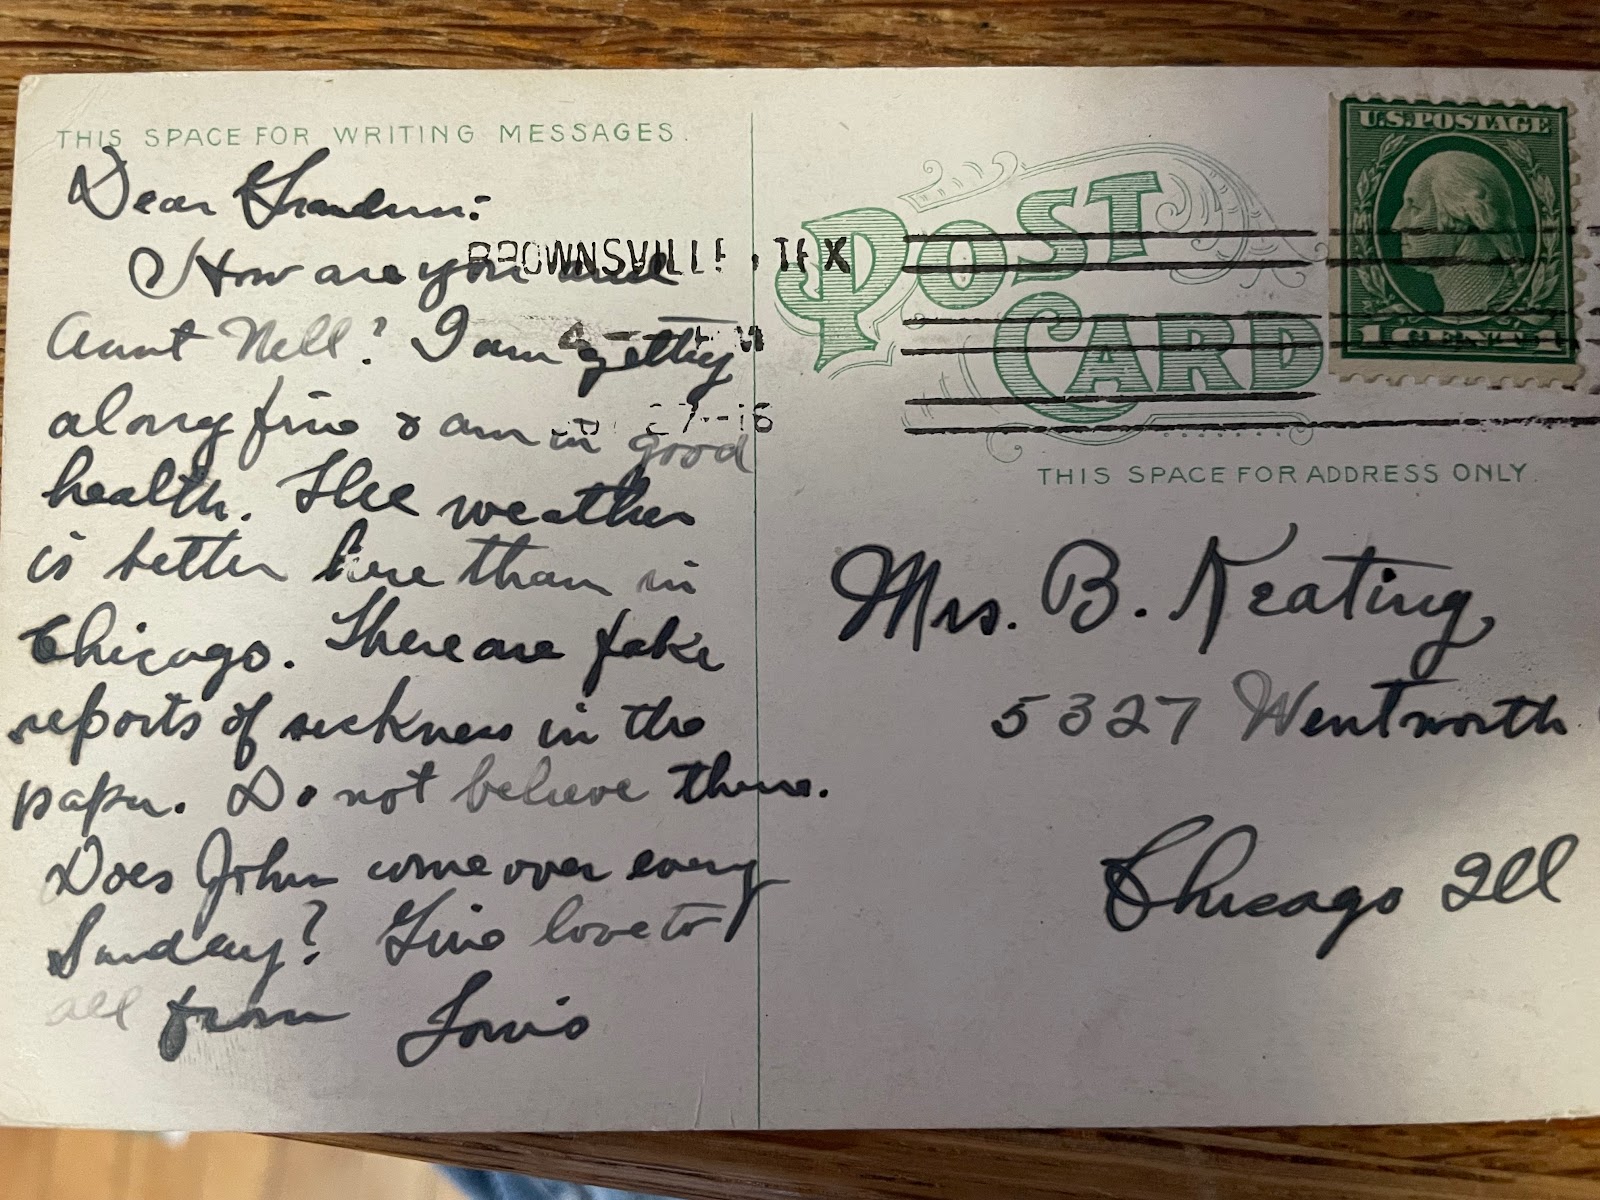 THIS SPACE FOR WRITING MESSAGES.
Dear Grandma:
How are you and
Aunt Nell? I am getting
along fine & am in good
health. The weather
is better here than in
Chicago. There are fake
reports of sickness in the
paper. Do not believe them.
Does John come over every
Sunday? Give love to
all from Louis
BROWNSVILLE, TEX
27--16
POST
CARD
U.S. POSTAGE
1 CENT 1
THIS SPACE FOR ADDRESS ONLY.
Mrs. B. Keating
5327 Wentworth
Chicago Ill